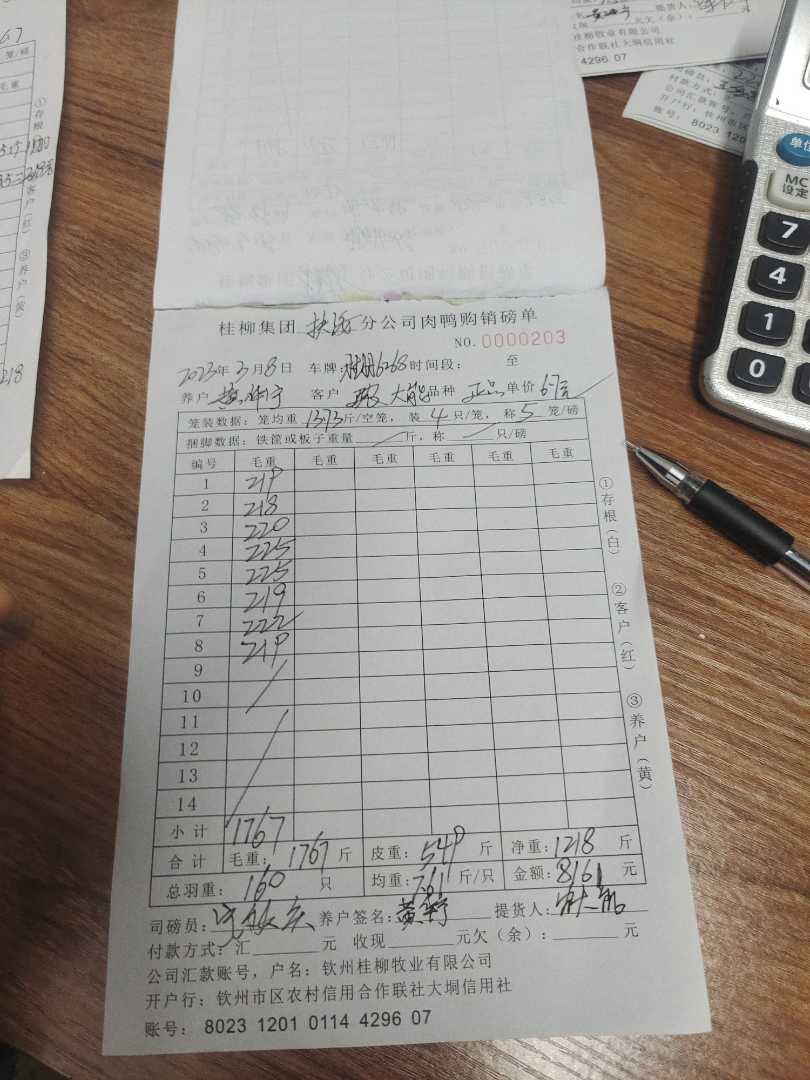 桂柳集团 分公司肉鸭购销磅单
NO. 0000203
2023年3月8日 车牌: 6268时间段: 至
养户 客户 大能 品种 正品 单价 6.7元
笼装数据: 笼均重 13.73斤/空笼, 装 4 只/笼, 称 5 笼/磅
捆脚数据: 铁筐或板子重量 斤, 称 只/磅
编号 毛重 毛重 毛重 毛重 毛重 毛重
1 219
2 218
3 220
4 225
5 225
6 219
7 222
8 219
9
10
11
12
13
14
小计 1767
合计 毛重: 1767 斤 皮重: 549 斤 净重: 1218 斤
总羽重: 160 只 均重: 7.61 斤/只 金额: 8161 元
司磅员: 养户签名: 提货人:
付款方式: 汇 元 收现 元欠(余): 元
公司汇款账号, 户名: 钦州桂柳牧业有限公司
开户行: 钦州市区农村信用合作联社大垌信用社
账号: 8023 1201 0114 4296 07
①存根(白)
②客户(红)
③养户(黄)
笼/磅
毛重
①存根
②客户(红)
③养户(黄)
218
提货人:
元欠(余): 元
桂柳牧业有限公司
合作联社大垌信用社
4296 07
付款方式:
公司汇款账号,
开户行: 钦州市区
账号: 8023 1201
单位
MC
设定
7
4
1
0